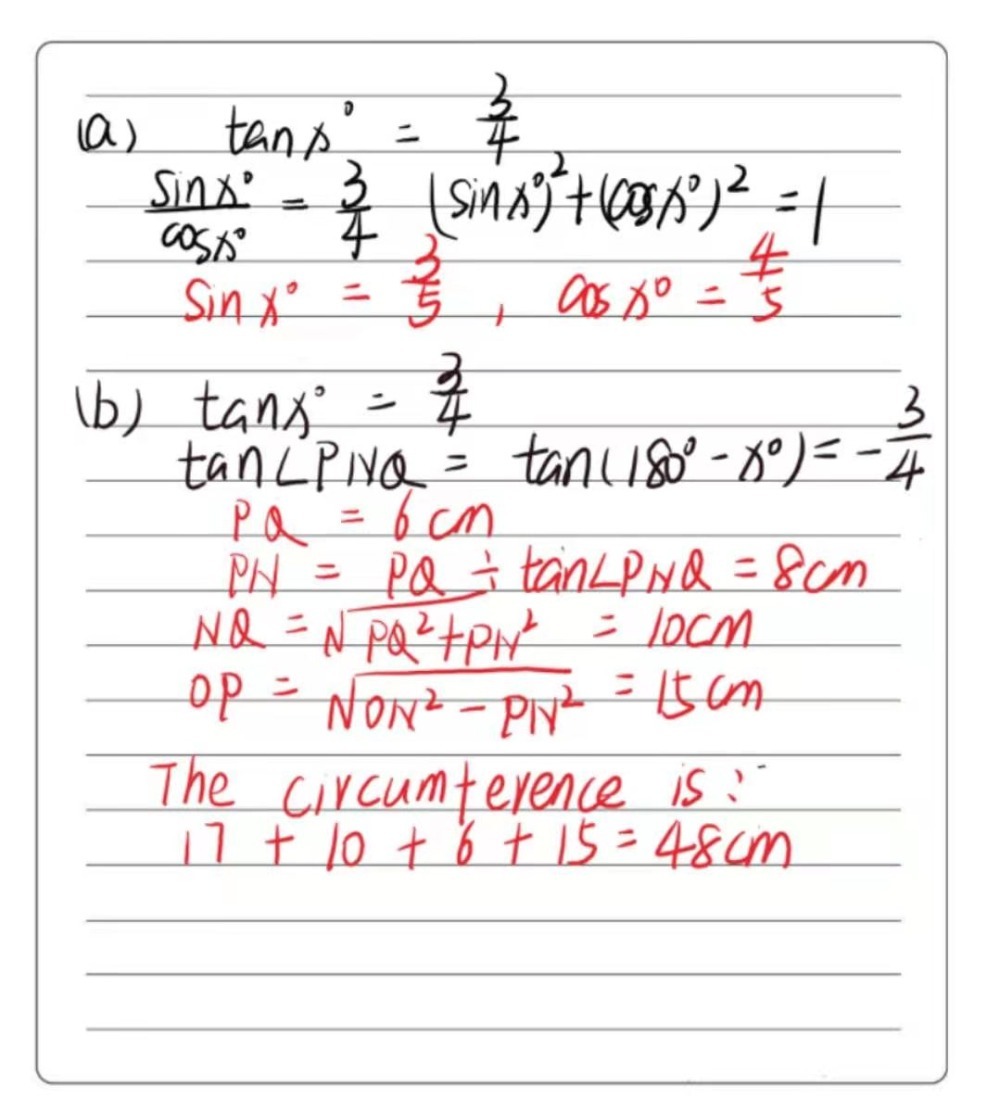 (a) tan x° = 3/4
sin x°/cos x° = 3/4 (sin x°)² + (cos x°)² = 1
sin x° = 3/5 , cos x° = 4/5
(b) tan x° = 3/4
tan∠PNQ = tan(180° - x°) = -3/4
PQ = 6 cm
PN = PQ ÷ tan∠PNQ = 8cm
NQ = √PQ²+PN² = 10cm
OP = √ON² - PN² = 15 cm
The circumference is :
17 + 10 + 6 + 15 = 48cm